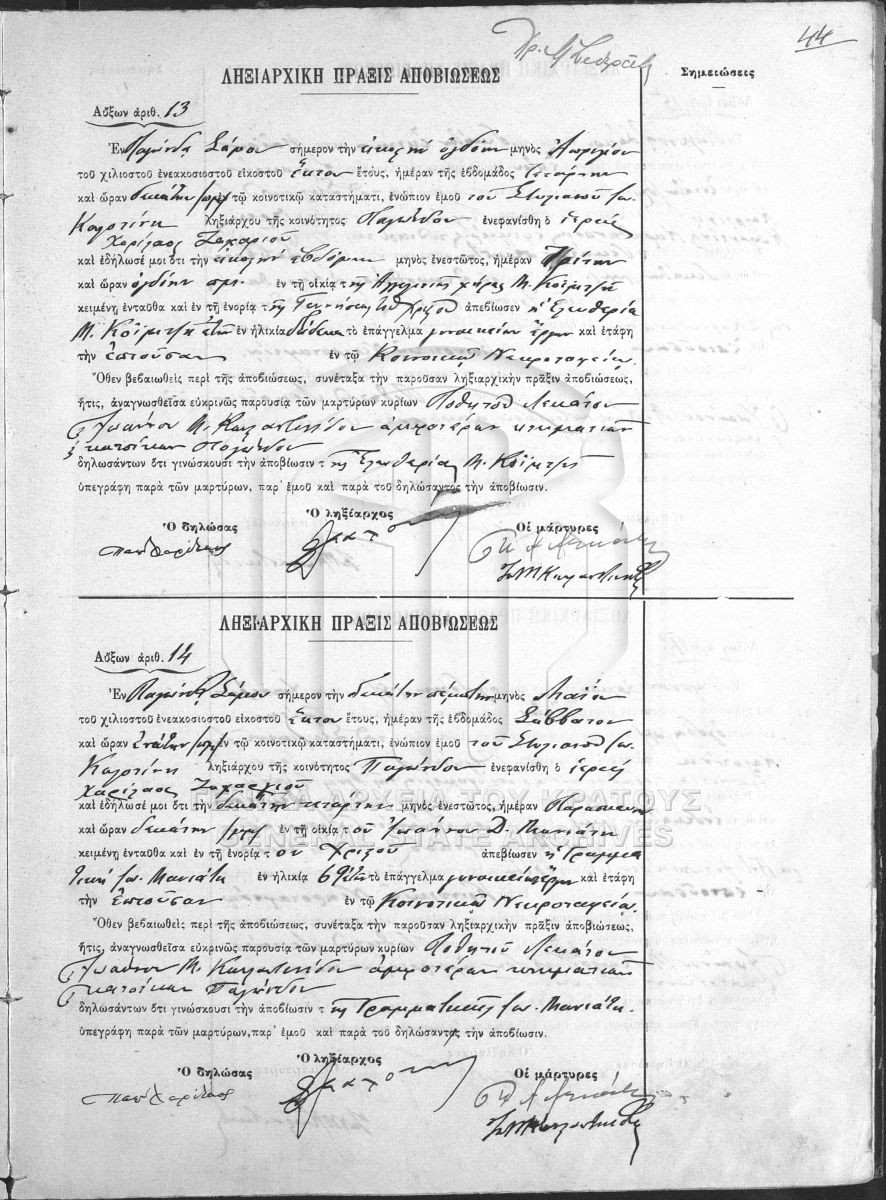 44
ΛΗΞΙΑΡΧΙΚΗ ΠΡΑΞΙΣ ΑΠΟΒΙΩΣΕΩΣ
Σημειώσεις
Αὔξων ἀριθ. 13
Ἐν Παγώνδᾳ Σάμου σήμερον τὴν εἰκοστὴν ὀγδόην μηνὸς Ἀπριλίου
τοῦ χιλιοστοῦ ἐνεακοσιοστοῦ εἰκοστοῦ ἕκτου ἔτους, ἡμέραν τῆς ἑβδομάδος Τετάρτην
καὶ ὥραν δεκάτην π.μ. ἐν τῷ κοινοτικῷ καταστήματι, ἐνώπιον ἐμοῦ τοῦ Στυλιανοῦ Ἰω.
ληξιάρχου τῆς κοινότητος Παγώνδου ἐνεφανίσθη ὁ ἱερεὺς
Χαρίλαος Ζαχαρίου
καὶ ἐδήλωσέ μοι ὅτι τὴν εἰκοστὴν ἑβδόμην μηνὸς ἐνεστῶτος, ἡμέραν Τρίτην
καὶ ὥραν ὀγδόην π.μ. ἐν τῇ οἰκίᾳ τῆς Ἀγγελικῆς χήρας Μ. Κοϊμτζῆ
κειμένῃ ἐνταῦθα καὶ ἐν τῇ ἐνορίᾳ τῆς Γεννήσεως τοῦ Χριστοῦ ἀπεβίωσεν ἡ Ἐλευθερία
Μ. Κοϊμτζῆ ἐτῶν ἐν ἡλικίᾳ δώδεκα τὸ ἐπάγγελμα γυναικεῖον ἔργον καὶ ἐτάφη
τὴν ἐπιοῦσαν ἐν τῷ Κοινοτικῷ Νεκροταφείῳ.
Ὅθεν βεβαιωθεὶς περὶ τῆς ἀποβιώσεως, συνέταξα τὴν παροῦσαν ληξιαρχικὴν πρᾶξιν ἀποβιώσεως,
ἥτις, ἀναγνωσθεῖσα εὐκρινῶς παρουσίᾳ τῶν μαρτύρων κυρίων Ποθητοῦ Λεκάτου
Ἰωάννου Μ. ἀμφοτέρων κτηματιῶν
κατοίκων Παγώνδου
δηλωσάντων ὅτι γινώσκουσι τὴν ἀποβίωσιν τῆς Ἐλευθερίας Μ. Κοϊμτζῆ
ὑπεγράφη παρὰ τῶν μαρτύρων, παρ' ἐμοῦ καὶ παρὰ τοῦ δηλώσαντος τὴν ἀποβίωσιν.
Ὁ δηλώσας Ὁ ληξίαρχος Οἱ μάρτυρες
ΛΗΞΙΑΡΧΙΚΗ ΠΡΑΞΙΣ ΑΠΟΒΙΩΣΕΩΣ
Αὔξων ἀριθ. 14
Ἐν Παγώνδᾳ Σάμου σήμερον τὴν δεκάτην πέμπτην μηνὸς Μαΐου
τοῦ χιλιοστοῦ ἐνεακοσιοστοῦ εἰκοστοῦ ἕκτου ἔτους, ἡμέραν τῆς ἑβδομάδος Σάββατον
καὶ ὥραν ἐνάτην π.μ. ἐν τῷ κοινοτικῷ καταστήματι, ἐνώπιον ἐμοῦ τοῦ Στυλιανοῦ Ἰω.
ληξιάρχου τῆς κοινότητος Παγώνδου ἐνεφανίσθη ὁ ἱερεὺς
Χαρίλαος Ζαχαρίου
καὶ ἐδήλωσέ μοι ὅτι τὴν δεκάτην τετάρτην μηνὸς ἐνεστῶτος, ἡμέραν Παρασκευὴν
καὶ ὥραν δεκάτην π.μ. ἐν τῇ οἰκίᾳ τοῦ Ἰωάννου Δ. Μανιάτη
κειμένῃ ἐνταῦθα καὶ ἐν τῇ ἐνορίᾳ τοῦ Χριστοῦ ἀπεβίωσεν ἡ Γραμμα
τικὴ Ἰω. Μανιάτη ἐν ἡλικίᾳ 69 ἐτῶν τὸ ἐπάγγελμα γυναικεῖον ἔργον καὶ ἐτάφη
τὴν ἐπιοῦσαν ἐν τῷ Κοινοτικῷ Νεκροταφείῳ.
Ὅθεν βεβαιωθεὶς περὶ τῆς ἀποβιώσεως, συνέταξα τὴν παροῦσαν ληξιαρχικὴν πρᾶξιν ἀποβιώσεως,
ἥτις, ἀναγνωσθεῖσα εὐκρινῶς παρουσίᾳ τῶν μαρτύρων κυρίων Ποθητοῦ Λεκάτου
Ἰωάννου Μ. ἀμφοτέρων κτηματιῶν
κατοίκων Παγώνδου
δηλωσάντων ὅτι γινώσκουσι τὴν ἀποβίωσιν τῆς Γραμματικῆς Ἰω. Μανιάτη.
ὑπεγράφη παρὰ τῶν μαρτύρων, παρ' ἐμοῦ καὶ παρὰ τοῦ δηλώσαντος τὴν ἀποβίωσιν.
Ὁ δηλώσας Ὁ ληξίαρχος Οἱ μάρτυρες
ΓΕΝΙΚΑ ΑΡΧΕΙΑ ΤΟΥ ΚΡΑΤΟΥΣ
GENERAL STATE ARCHIVES